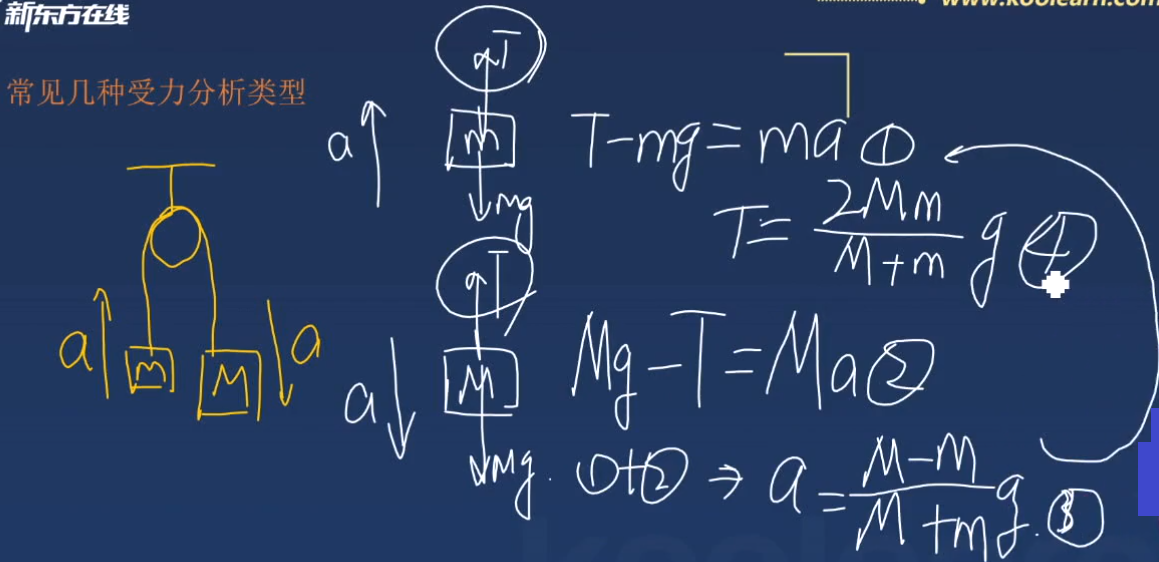 新东方在线
www.koolearn.com
常见几种受力分析类型
T
a
m
T-mg=ma①
mg
T=2Mm/M+m g④
T
a
m
M
a
a
M
Mg-T=Ma②
Mg.
①+②→a=M-m/M+m g.③